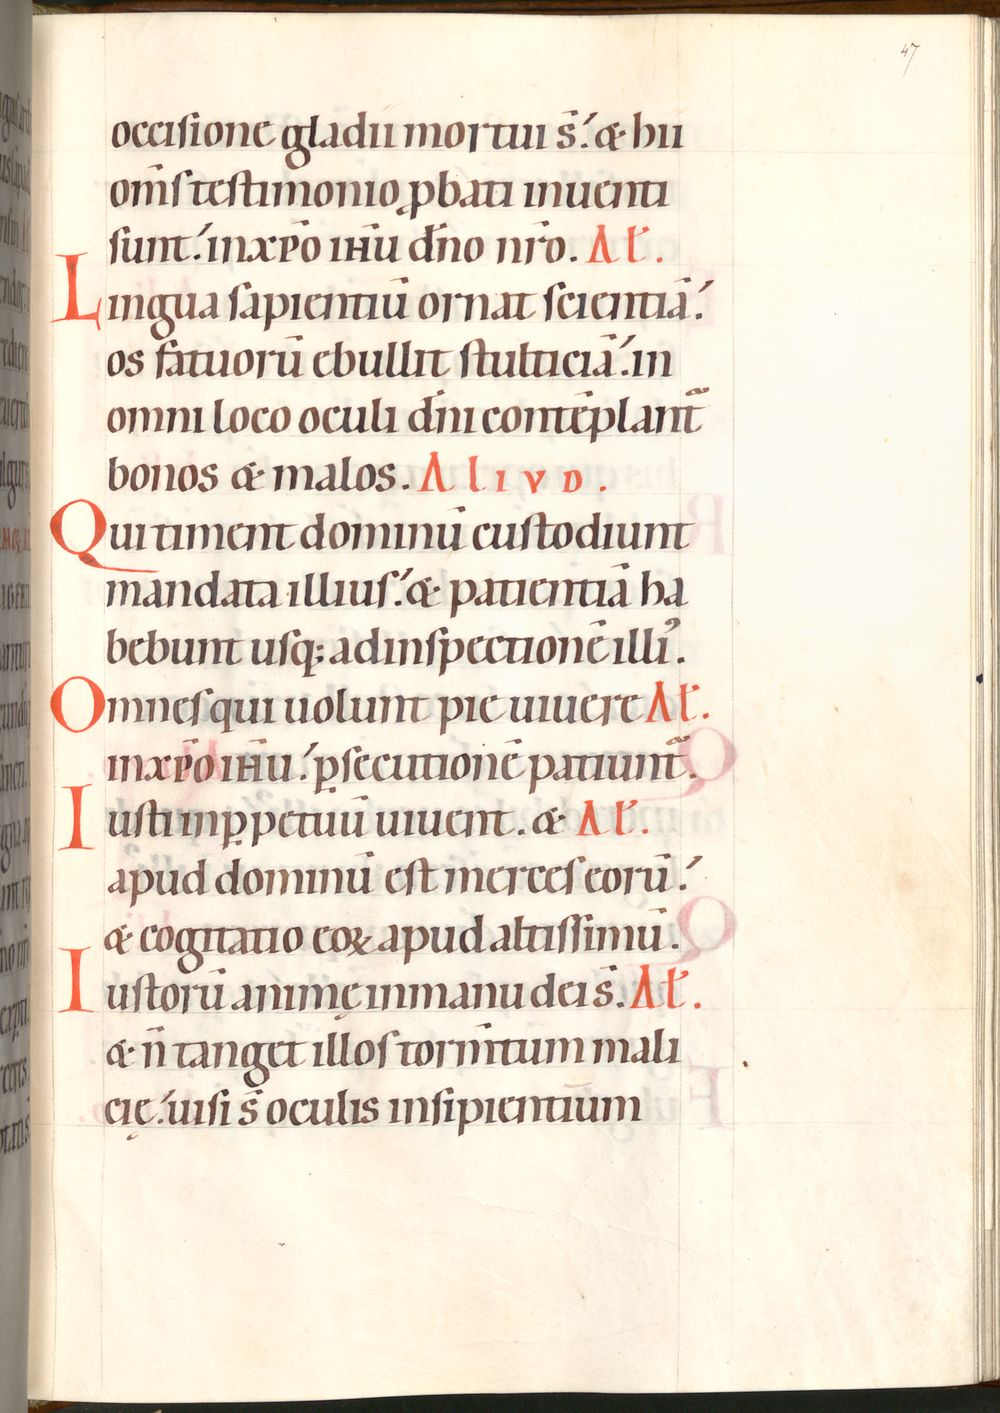 47
occisione gladii mortui s̄. & hii
om̄s testimonio ꝓbati inuenti
sunt. in xp̄o ih̄u dn̄o nr̄o. Al̄.
Lingua sapientiū ornat scientiā.
os fatuorū ebullit stulticiā. in
omni loco oculi dn̄i contēplant᷑
bonos & malos. Aliud.
Qui timent dominū custodiunt
mandata illius. & patientiā ha
bebunt usq; ad inspectionē illiꝰ.
Omnes qui uolunt pie uiuere Al̄.
in xp̄o ih̄u. ꝑsecutionē patiunt᷑.
Iusti in ꝑpetuū uiuent. & Al̄.
apud dominū est merces eorū.
& cogitatio eoꝝ apud altissimū.
Iustorū animę in manu dei s̄. Al̄.
& n̄ tanget illos torm̄tum mali
cię. uisi s̄ oculis insipientium